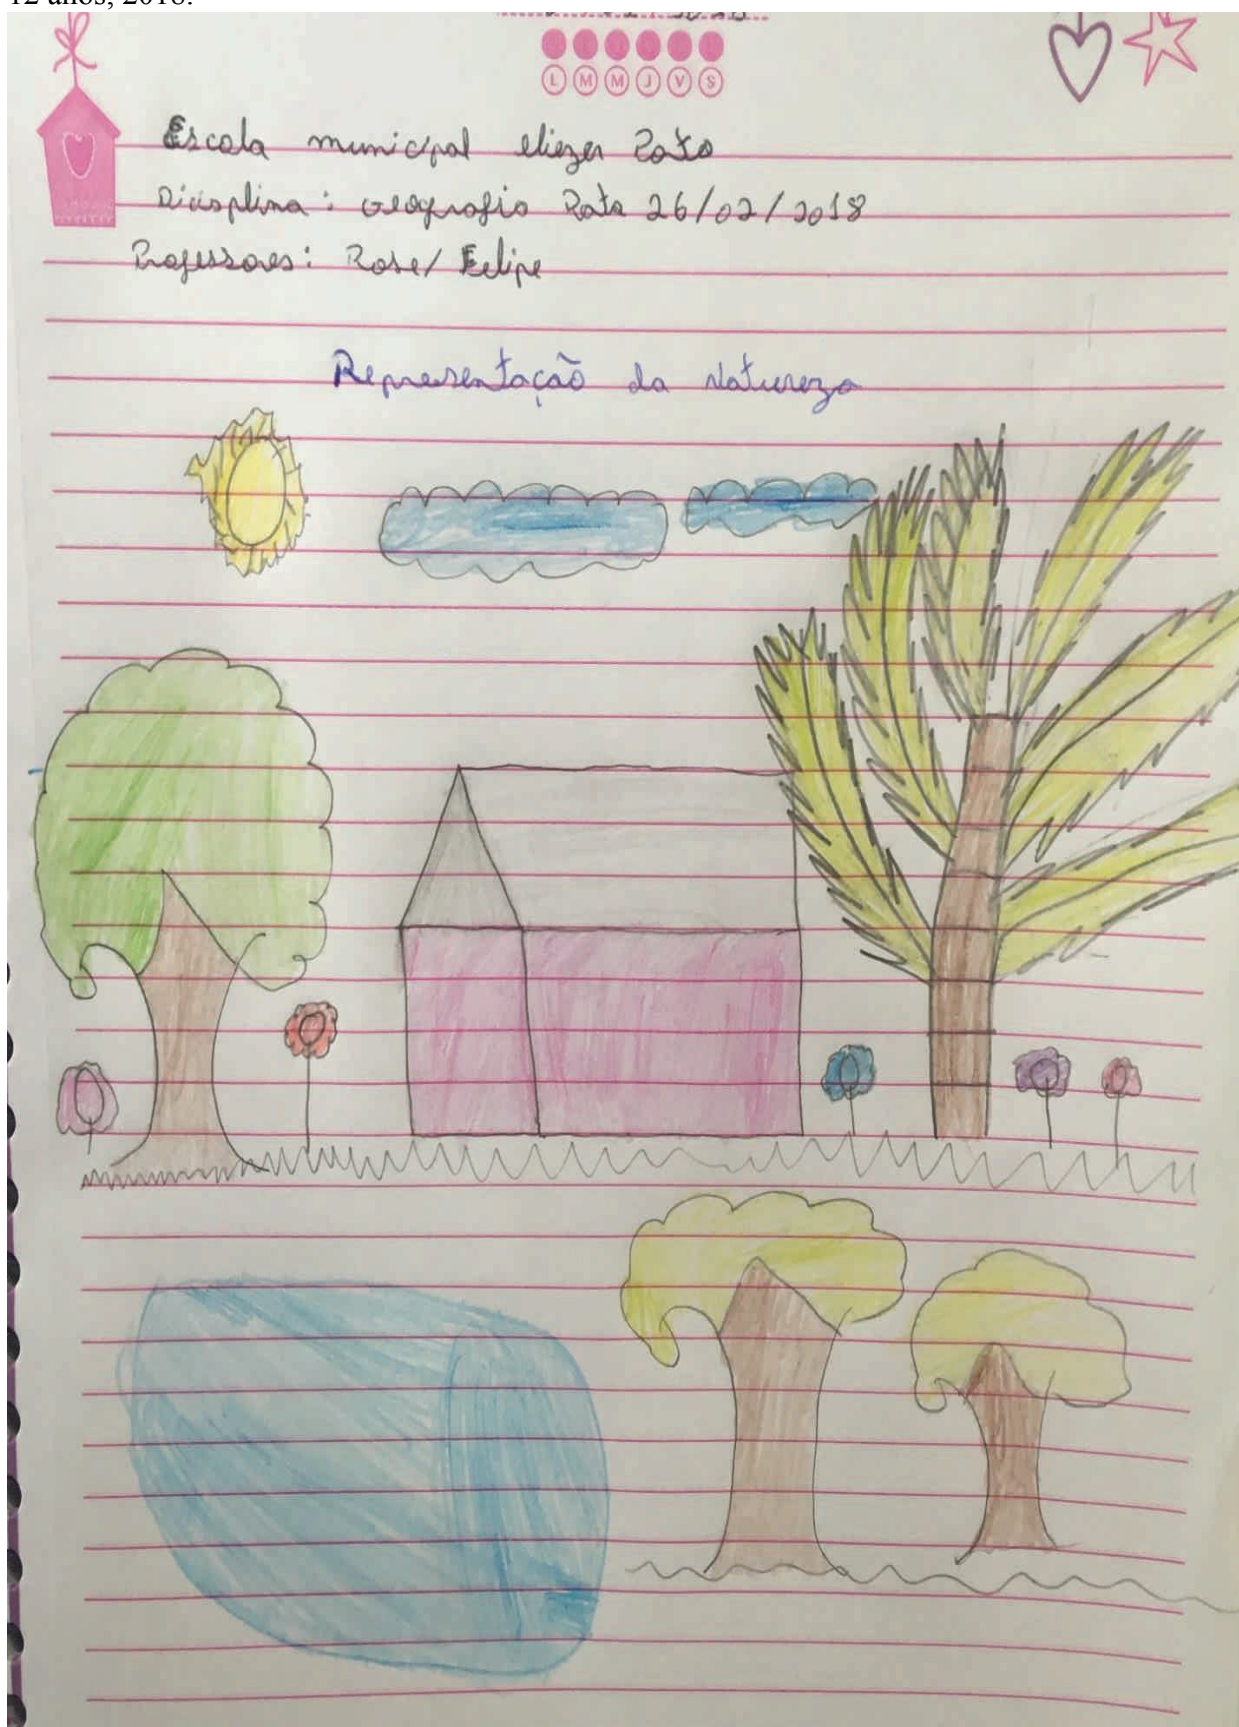 12 anos, 2018.
L M M J V S
Escola municipal eliezer
Diciplina: Geografia Data 26/02/2018
Professores: Rose/ Felipe
Representação da Natureza